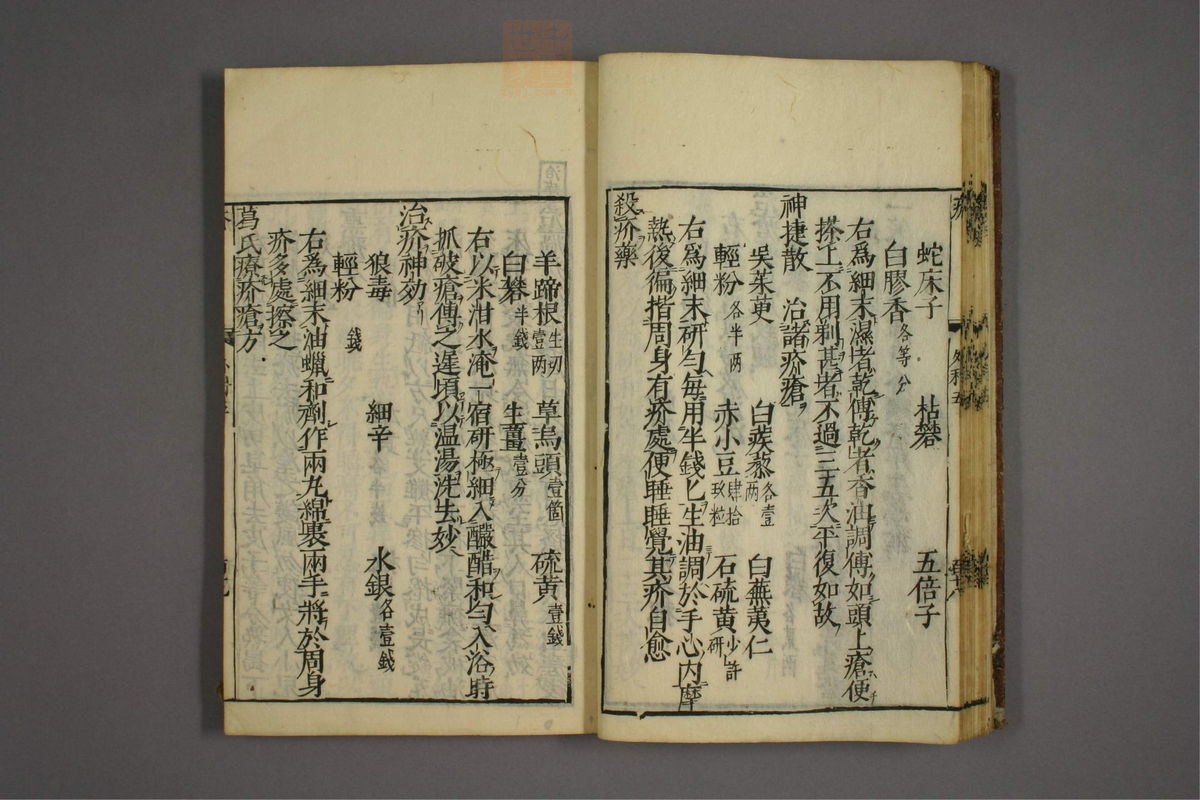 蛇床子 枯礬 五倍子
白膠香各等分
右爲細末濕者乾傅乾者香油調傅如頭上瘡便
搽上不用剃甚者不過三五次平復如故
神捷散 治諸疥瘡
吳茱萸 白蒺藜各壹两 白蕪荑仁
輕粉各半两 赤小豆肆拾玖粒 石硫黄少許研
右爲細末研匀每用半錢匕生油調於手心内摩
熱後徧揩周身有疥處便睡睡覺其疥自愈
殺疥藥
羊蹄根生切壹两 草烏頭壹箇 硫黄壹錢
白礬半錢 生薑壹分
右以米泔水淹一宿研極細入釅醋和匀入浴時
抓破瘡傅之遲頃以温湯洗去妙
治疥神効
狼毒 細辛 水銀各壹錢
輕粉 錢
右爲細末油蠟和劑作兩丸綿裹兩手將於周身
疥多處擦之
葛氏療疥瘡方